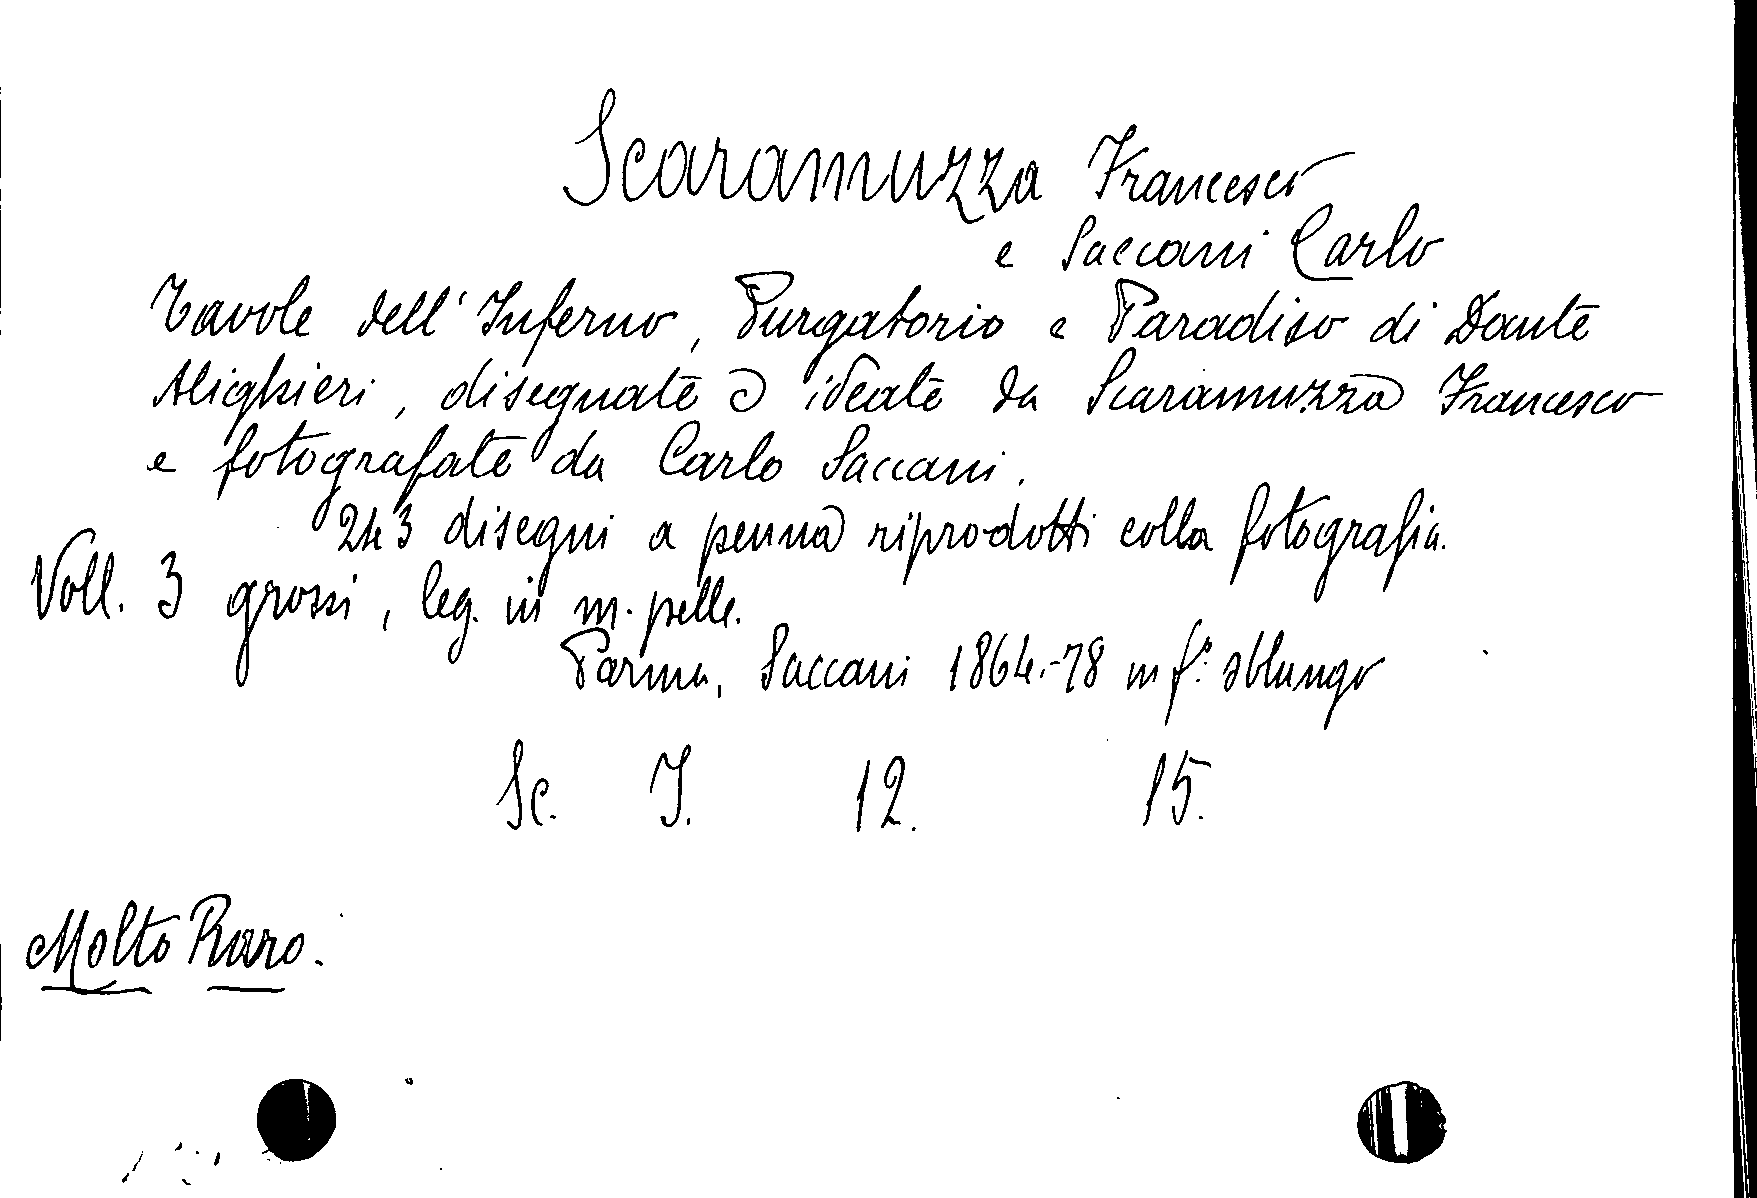 Scaramuzza Francesco
e Saccani Carlo
Tavole dell'Inferno, Purgatorio e Paradiso di Dante
Alighieri, disegnate e ideate da Scaramuzza Francesco
e fotografate da Carlo Saccani.
243 disegni a penna riprodotti colla fotografia.
Voll. 3 grossi, leg. in m. pelle.
Parma, Saccani 1864-78 in f.° oblungo
Sc. I. 12. 15.
Molto Raro.